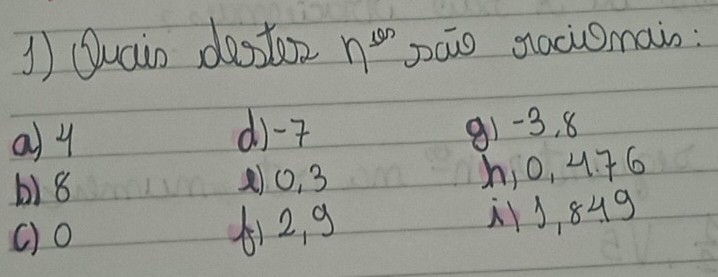 1) Quais destes nºs são racionais:
a) 4 d) -7 g) -3,8
b) 8 e) 0,3 h) 0,476
c) 0 f) 2,9 i) 1,849